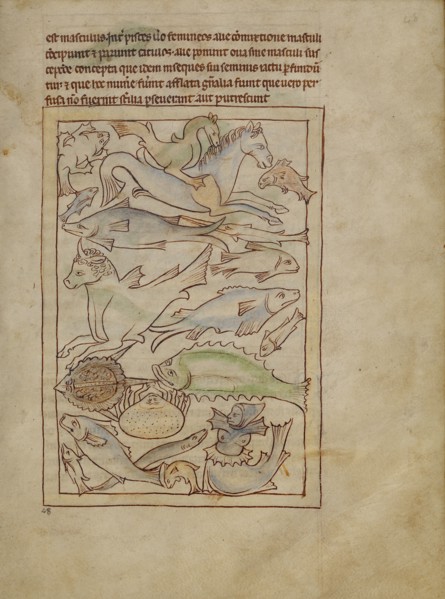 est masculus. Int pisces u͛o femineos aut cōmixtione masculi
cōcipiunt & pariunt catulos. aut ponunt oua sine masculi sus
cepto concepta que idem insequens sui seminis tactu pfundun
tur & que hoc mune fuint afflata gnalia fiunt que uero per
fusa nō fuerint sterilia pseuerant aut putrescunt
48